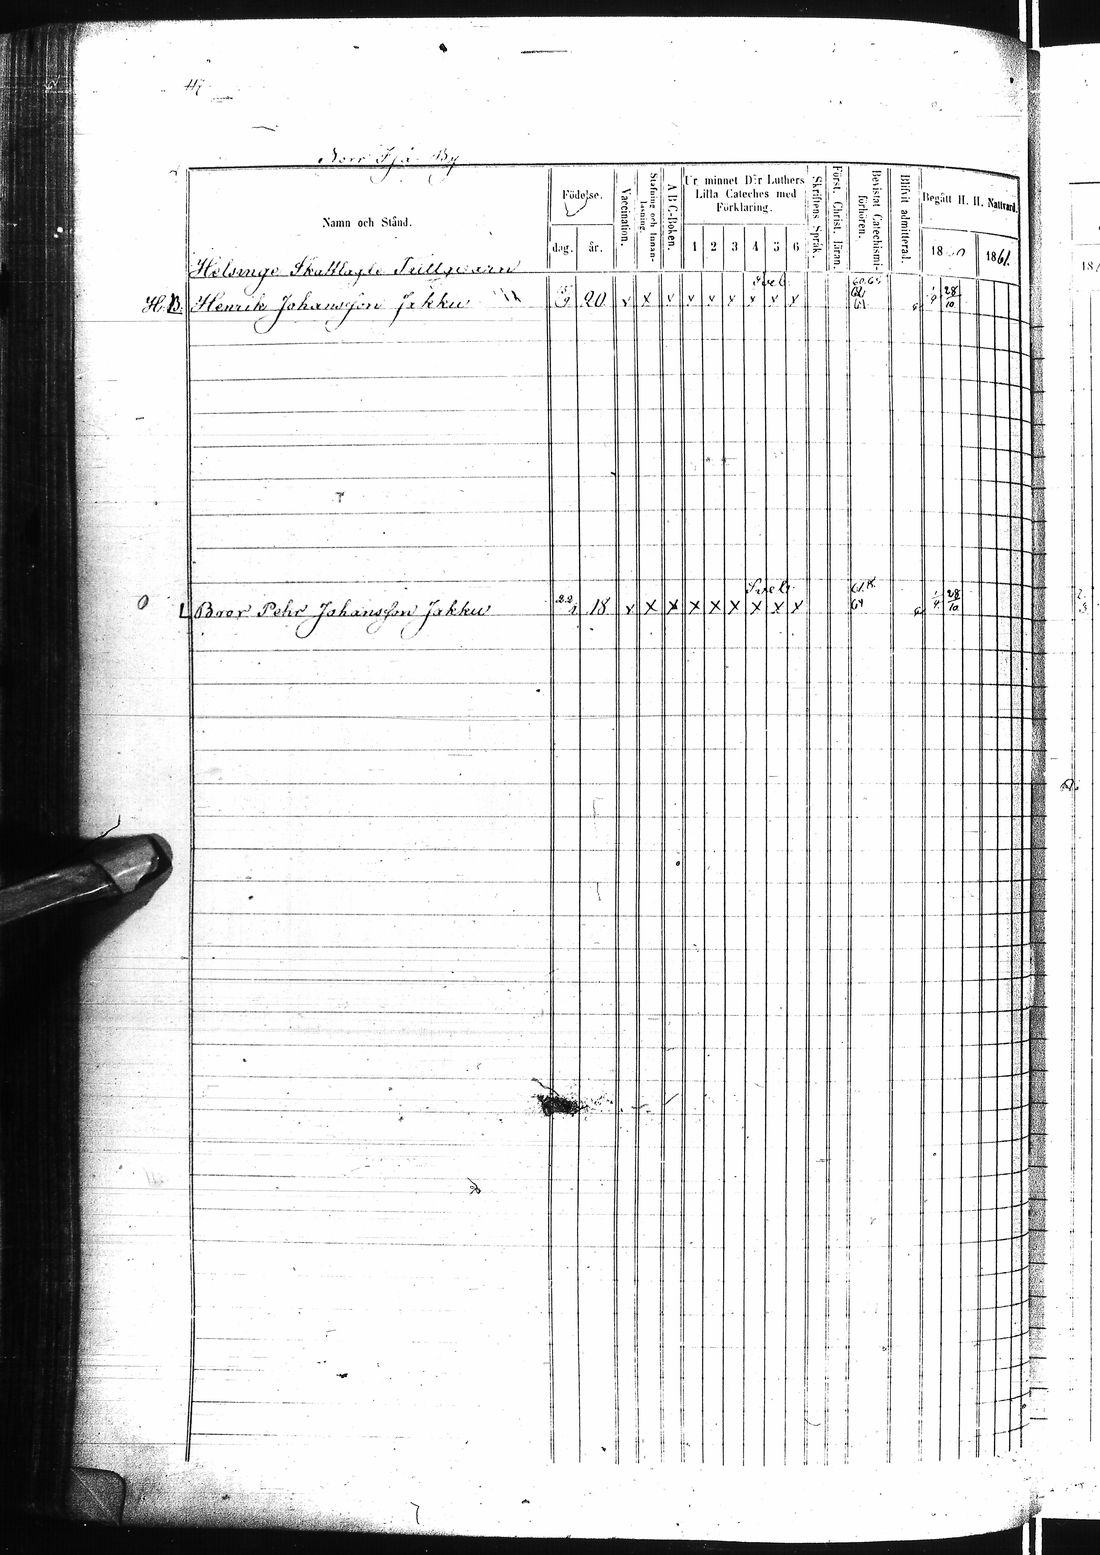 47
Norr Sjö By
Namn och Stånd.
Födelse.
dag.
år.
Vaccination.
Stafning och Innan-
läsning.
A B C-Boken.
Ur minnet D:r Luthers
Lilla Cateches med
Förklaring.
1 2 3 4 5 6
Skriftens Språk.
Först. Christ. läran.
Bevistat Catechismi-
förhören.
Blifvit admitterad.
Begått H. H. Nattvard.
1860
1861.
Helsinge Skattlagde Tullqvarn
H.B. Henrik Johansson Jakku 20 v x v v v v x x x
Svel.
28/10
61
L Bror Pehr Johansson Jakku 22 18 v x x x x x x x x
Svel.
28/10